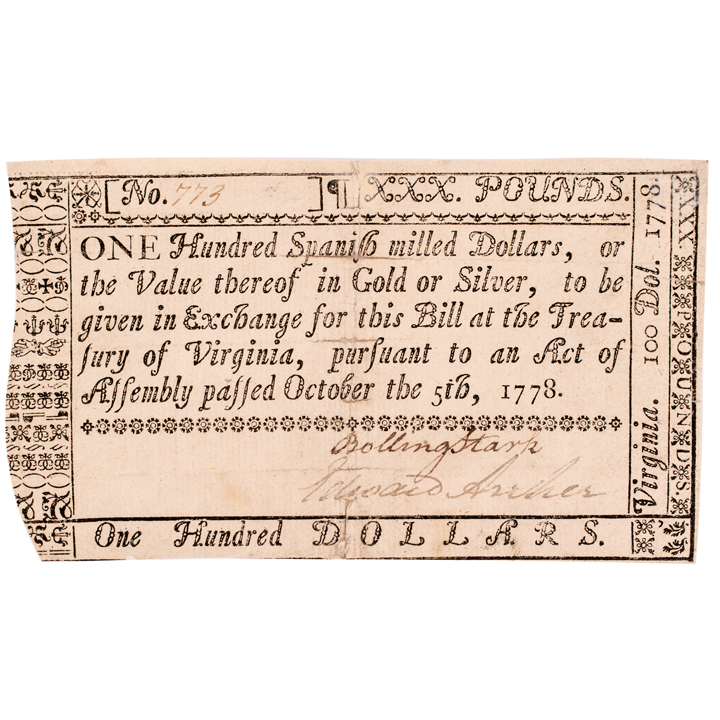 No. 773 ] ¶ XXX. POUNDS.
ONE Hundred Spaniſh milled Dollars, or
the Value thereof in Gold or Silver, to be
given in Exchange for this Bill at the Trea-
ſury of Virginia, purſuant to an Act of
Aſſembly paſſed October the 5th, 1778.
Bolling Stark
Edward Archer
One Hundred DOLLARS.
Virginia. 100 Dol. 1778.
XXX POUNDS.